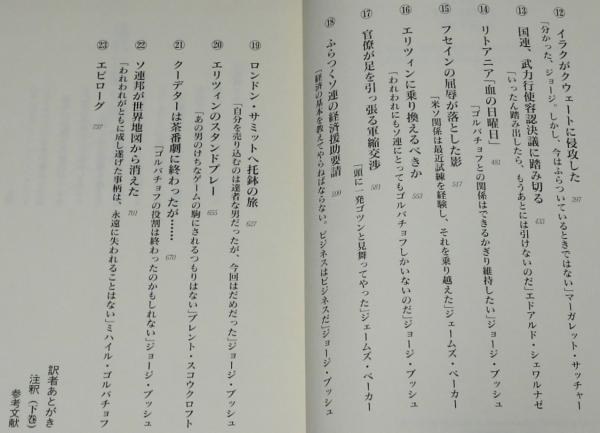 ⑫ イラクがクウェートに侵攻した 397
「分かった、ジョージ。しかし、今はふらついているときではない」マーガレット・サッチャー
⑬ 国連、武力行使容認決議に踏み切る 433
「いったん踏み出したら、もうあとには引けないのだ」エドアルド・シェワルナゼ
⑭ リトアニア「血の日曜日」 481
「ゴルバチョフとの関係はできるかぎり維持したい」ジョージ・ブッシュ
⑮ フセインの屈辱が落とした影 517
「米ソ関係は最近試練を経験し、それを乗り越えた」ジェームズ・ベーカー
⑯ エリツィンに乗り換えるべきか 553
「われわれにもソ連にとってもゴルバチョフしかいないのだ」ジョージ・ブッシュ
⑰ 官僚が足を引っ張る軍縮交渉 581
「頭に一発ゴツンと見舞ってやった」ジェームズ・ベーカー
⑱ ふらつくソ連の経済援助要請 599
「経済の基本を教えてやらねばならない。ビジネスはビジネスだ」ジョージ・ブッシュ
⑲ ロンドン・サミットへ托鉢の旅 627
「自分を売り込むのは達者な男だったが、今回はだめだった」ジョージ・ブッシュ
⑳ エリツィンのスタンドプレー 655
「あの男のけちなゲームの駒にされるつもりはない」ブレント・スコウクロフト
㉑ クーデターは茶番劇に終わったが…… 670
「ゴルバチョフの役割は終わったのかもしれない」ジョージ・ブッシュ
㉒ ソ連邦が世界地図から消えた 701
「われわれがともに成し遂げた事柄は、永遠に失われることはない」ミハイル・ゴルバチョフ
㉓ エピローグ 737
訳者あとがき
注釈（下巻）
参考文献